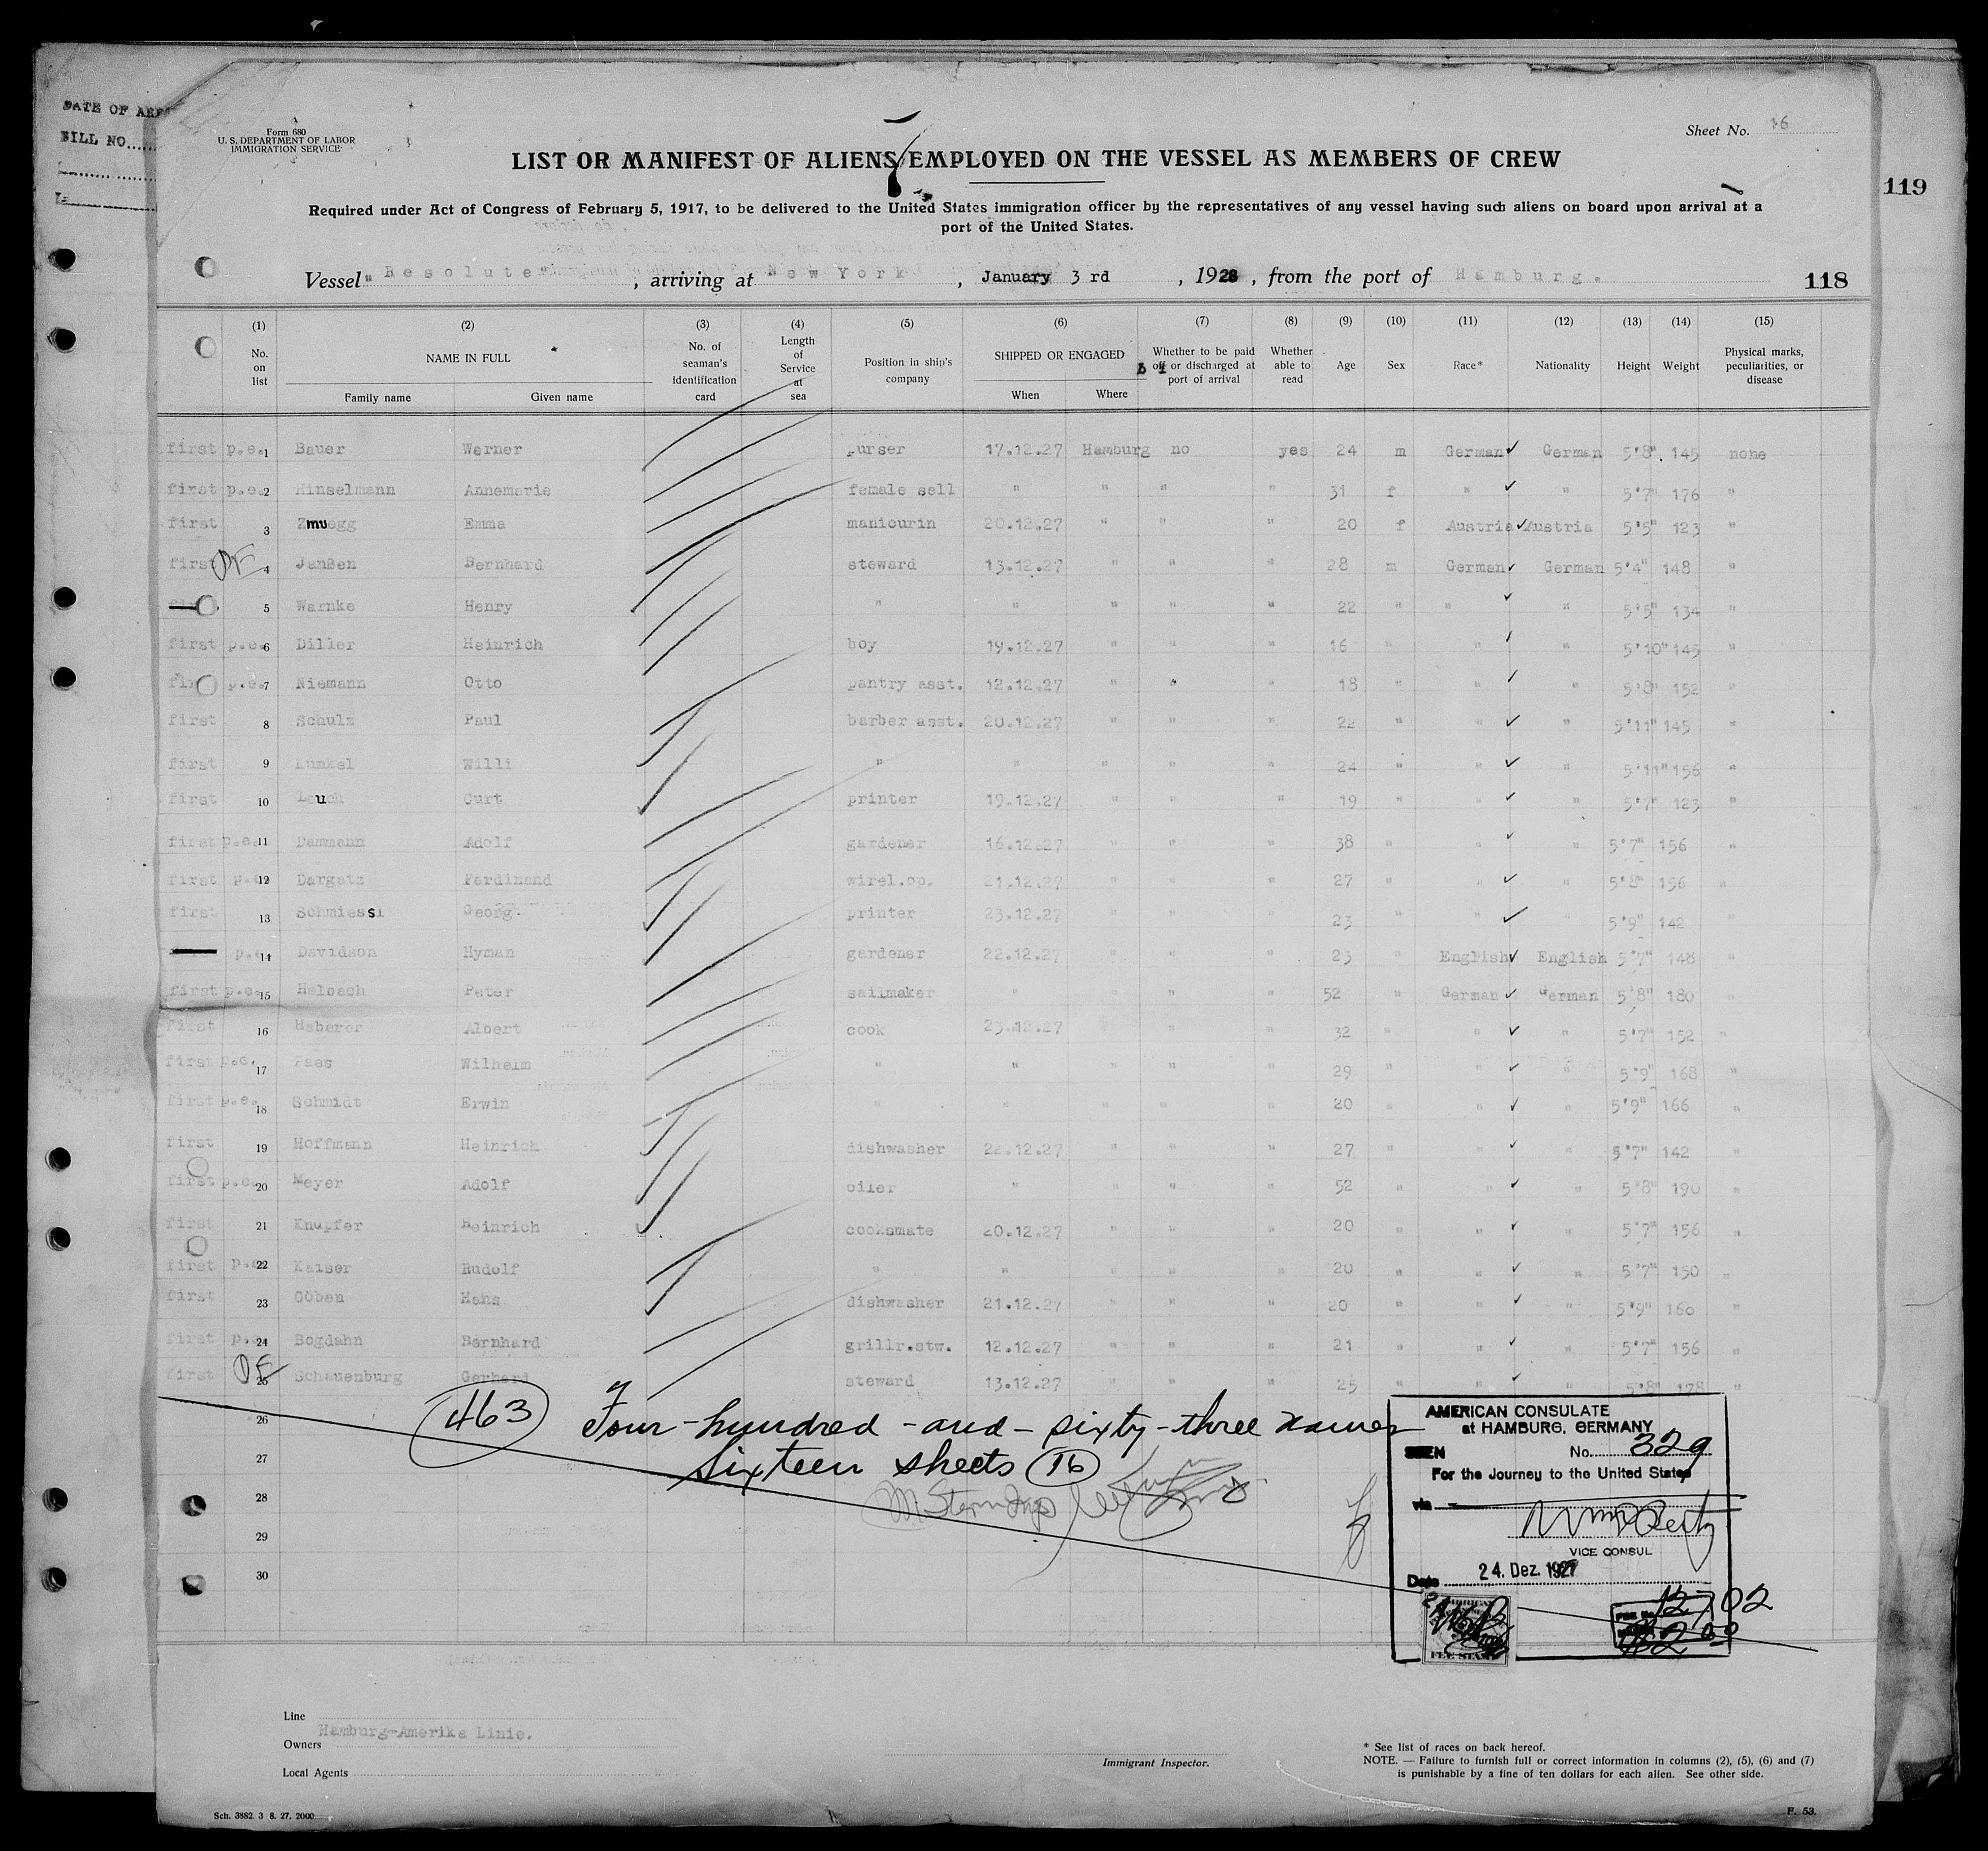 DATE OF
BILL NO.
Form 680
U. S. DEPARTMENT OF LABOR
IMMIGRATION SERVICE
Sheet No. 16
LIST OR MANIFEST OF ALIENS EMPLOYED ON THE VESSEL AS MEMBERS OF CREW
119
Required under Act of Congress of February 5, 1917, to be delivered to the United States immigration officer by the representatives of any vessel having such aliens on board upon arrival at a
port of the United States.
Vessel "Resolute", arriving at New York, January 3rd, 1928, from the port of Hamburg. 118
(1) (2) (3) (4) (5) (6) (7) (8) (9) (10) (11) (12) (13) (14) (15)
No. on list NAME IN FULL Family name Given name No. of seaman's identification card Length of Service at sea Position in ship's company SHIPPED OR ENGAGED When Where Whether to be paid off or discharged at port of arrival Whether able to read Age Sex Race* Nationality Height Weight Physical marks, peculiarities, or disease
first p.e. 1 Bauer Werner purser 17.12.27 Hamburg no yes 24 m German German 5'8" 145 none
first p.e. 2 Hinselmann Annemarie female sell " " " " 31 f " " 5'7" 176 "
first 3 Zmuegg Emma manicurin 20.12.27 " " " 20 f Austria Austria 5'5" 123 "
first 4 Janßen Bernhard steward 13.12.27 " " " 28 m German German 5'4" 148 "
5 Warnke Henry " " " " " 22 " " " 5'5" 134 "
first p.e. 6 Diller Heinrich boy 19.12.27 " " " 16 " " " 5'10" 145 "
first p.e. 7 Niemann Otto pantry asst. 12.12.27 " " " 18 " " " 5'8" 152 "
first 8 Schulz Paul barber asst. 20.12.27 " " " 22 " " " 5'11" 145 "
first 9 Kunkel Willi " " " " " 24 " " " 5'11" 156 "
first 10 Leuch Curt printer 19.12.27 " " " 19 " " " 5'7" 123 "
first p.e. 11 Dammann Adolf gardener 16.12.27 " " " 38 " " " 5'7" 156 "
first p.e. 12 Dargatz Ferdinand wirel.op. 21.12.27 " " " 27 " " " 5'8" 156 "
first 13 Schmiessl Georg. printer 23.12.27 " " " 23 " " " 5'9" 142 "
p.e. 14 Davidson Hyman gardener 22.12.27 " " " 23 " English English 5'7" 148 "
first p.e. 15 Helbach Peter sailmaker " " " " 52 " German German 5'8" 180 "
first 16 Haberer Albert cook 23.12.27 " " " 32 " " " 5'7" 152 "
first p.e. 17 Paes Wilhelm " " " " " 29 " " " 5'9" 168 "
first p.e. 18 Schmidt Erwin " " " " " 20 " " " 5'9" 166 "
first 19 Hoffmann Heinrich dishwasher 22.12.27 " " " 27 " " " 5'7" 142 "
first p.e. 20 Meyer Adolf oiler " " " " 52 " " " 5'8" 190 "
first 21 Knupfer Heinrich cooksmate 20.12.27 " " " 20 " " " 5'7" 156 "
first p.e. 22 Kaiser Rudolf " " " " " 20 " " " 5'7" 150 "
first 23 Göben Hans dishwasher 21.12.27 " " " 20 " " " 5'9" 160 "
first p.e. 24 Bogdahn Bernhard grillr.stw. 12.12.27 " " " 21 " " " 5'7" 156 "
first 25 Schauenburg Gerhard steward 13.12.27 " " " 25 " " " 5'8" 178 "
26 463 Four-hundred-and-sixty-three names
27 Sixteen sheets (16)
28
29
30
AMERICAN CONSULATE
at HAMBURG, GERMANY
SEEN No. 329
For the Journey to the United States
via
VICE CONSUL
Date 24. Dez. 1927
12702
FEE STAMP
Line
Hamburg-Amerika Linie.
Owners
Local Agents
Immigrant Inspector.
* See list of races on back hereof.
NOTE. — Failure to furnish full or correct information in columns (2), (5), (6) and (7)
is punishable by a fine of ten dollars for each alien. See other side.
Sch. 3882. 3 8. 27. 2000.
F. 53.